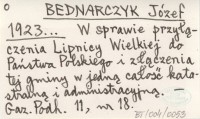 BEDNARCZYK Józef
1923... W sprawie przyłą-
czenia Lipnicy Wielkiej do
Państwa Polskiego i złączenia
tej gminy w jedną całość kata-
stralną i administracyjną. –
Gaz. Podh. 11, nr 18.
BJ/004/0053